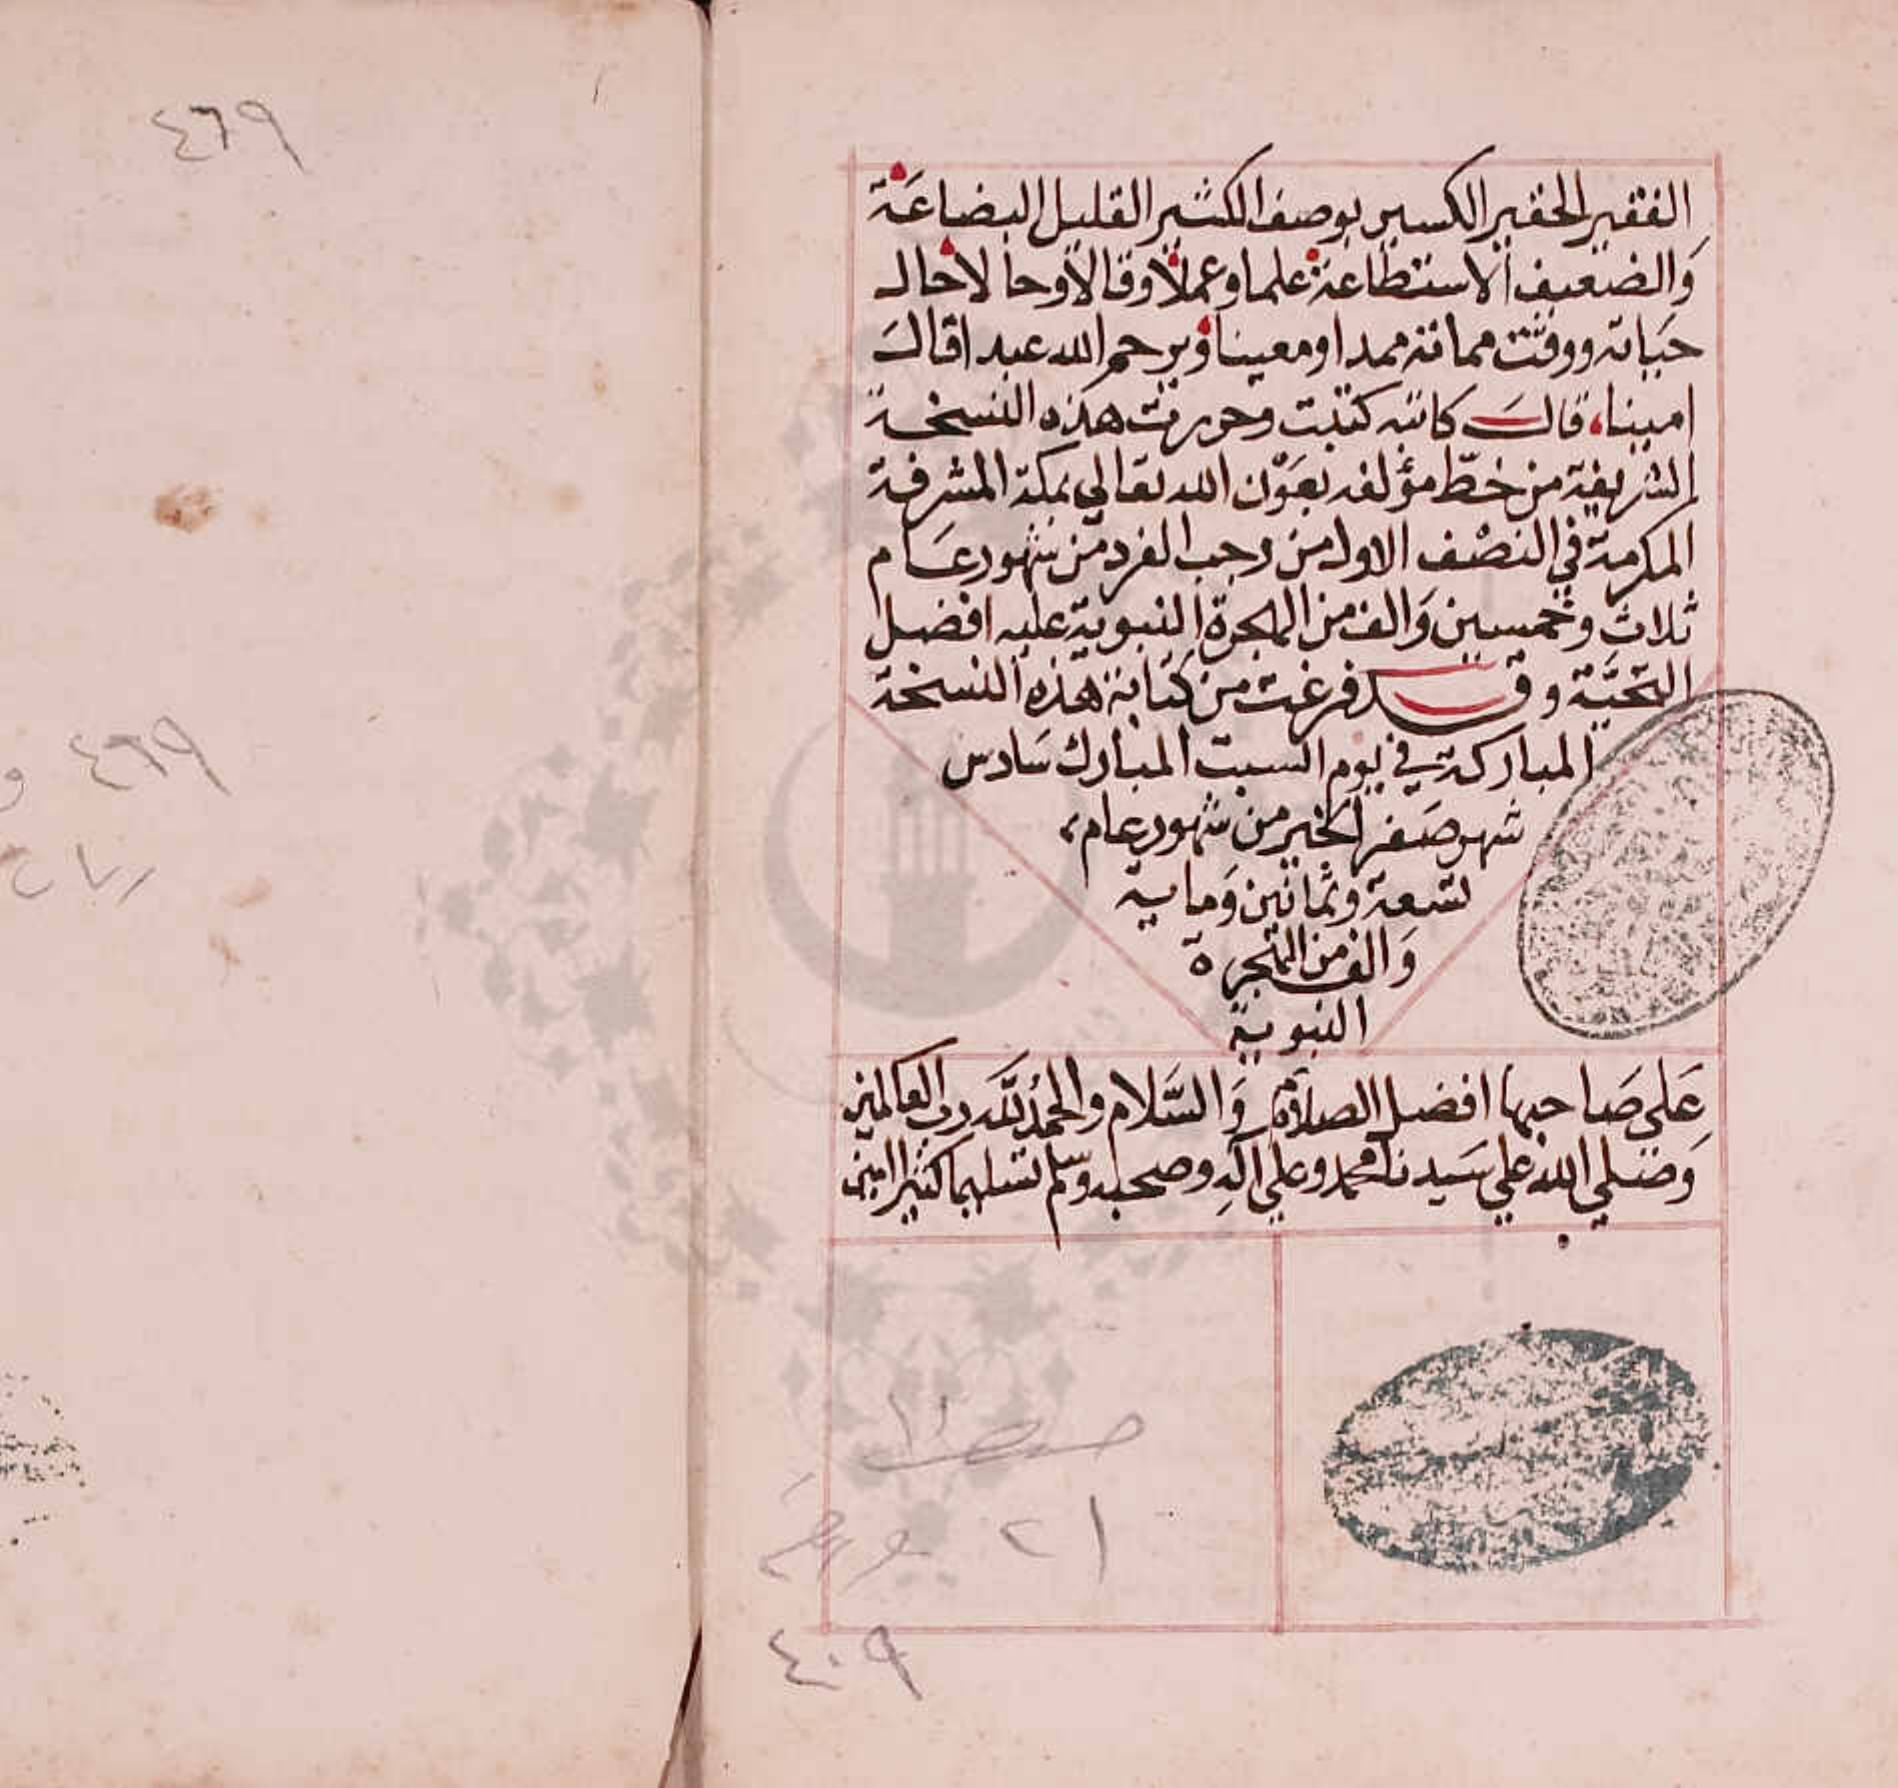 الفقير الحقير الكسير بوصف الكثير القليل البضاعة
والضعيف الاستطاعة علما وعملا وقالا وحالا لا حال
حياته ووقت مماته ممدا ومعينا ويرحم الله عبدا قال
امينا، قال كاتبه كتبت وحررت هذه النسخة
الشريفة من خطّ مؤلفه بعَوْن الله تعالي بمكة المشرفة
المكرمة في النصْف الاول من رجب الفرد من شهور عَام
ثلاث وخمسين وَالف من الهجرة النبوية عليه افضل
التحيَّة وقد فرغت من كتابة هذه النسخة
المباركة في يوم السبت المبارك سَادس
شهر صَفر الخير من شهور عام
تسعة وثمانين وَماية
وَالف من الهجرة
النبوية
عَلي صَاحبها افضل الصلاة وَالسَّلام والحمدُ للَّه رب العَالمين
وَصَلي الله علي سَيدنا محمد وعلي آلهِ وصحبه وسلم تسليما كثيرا امين
٢١
٤٠٩
٤٦٩
٤٦٩